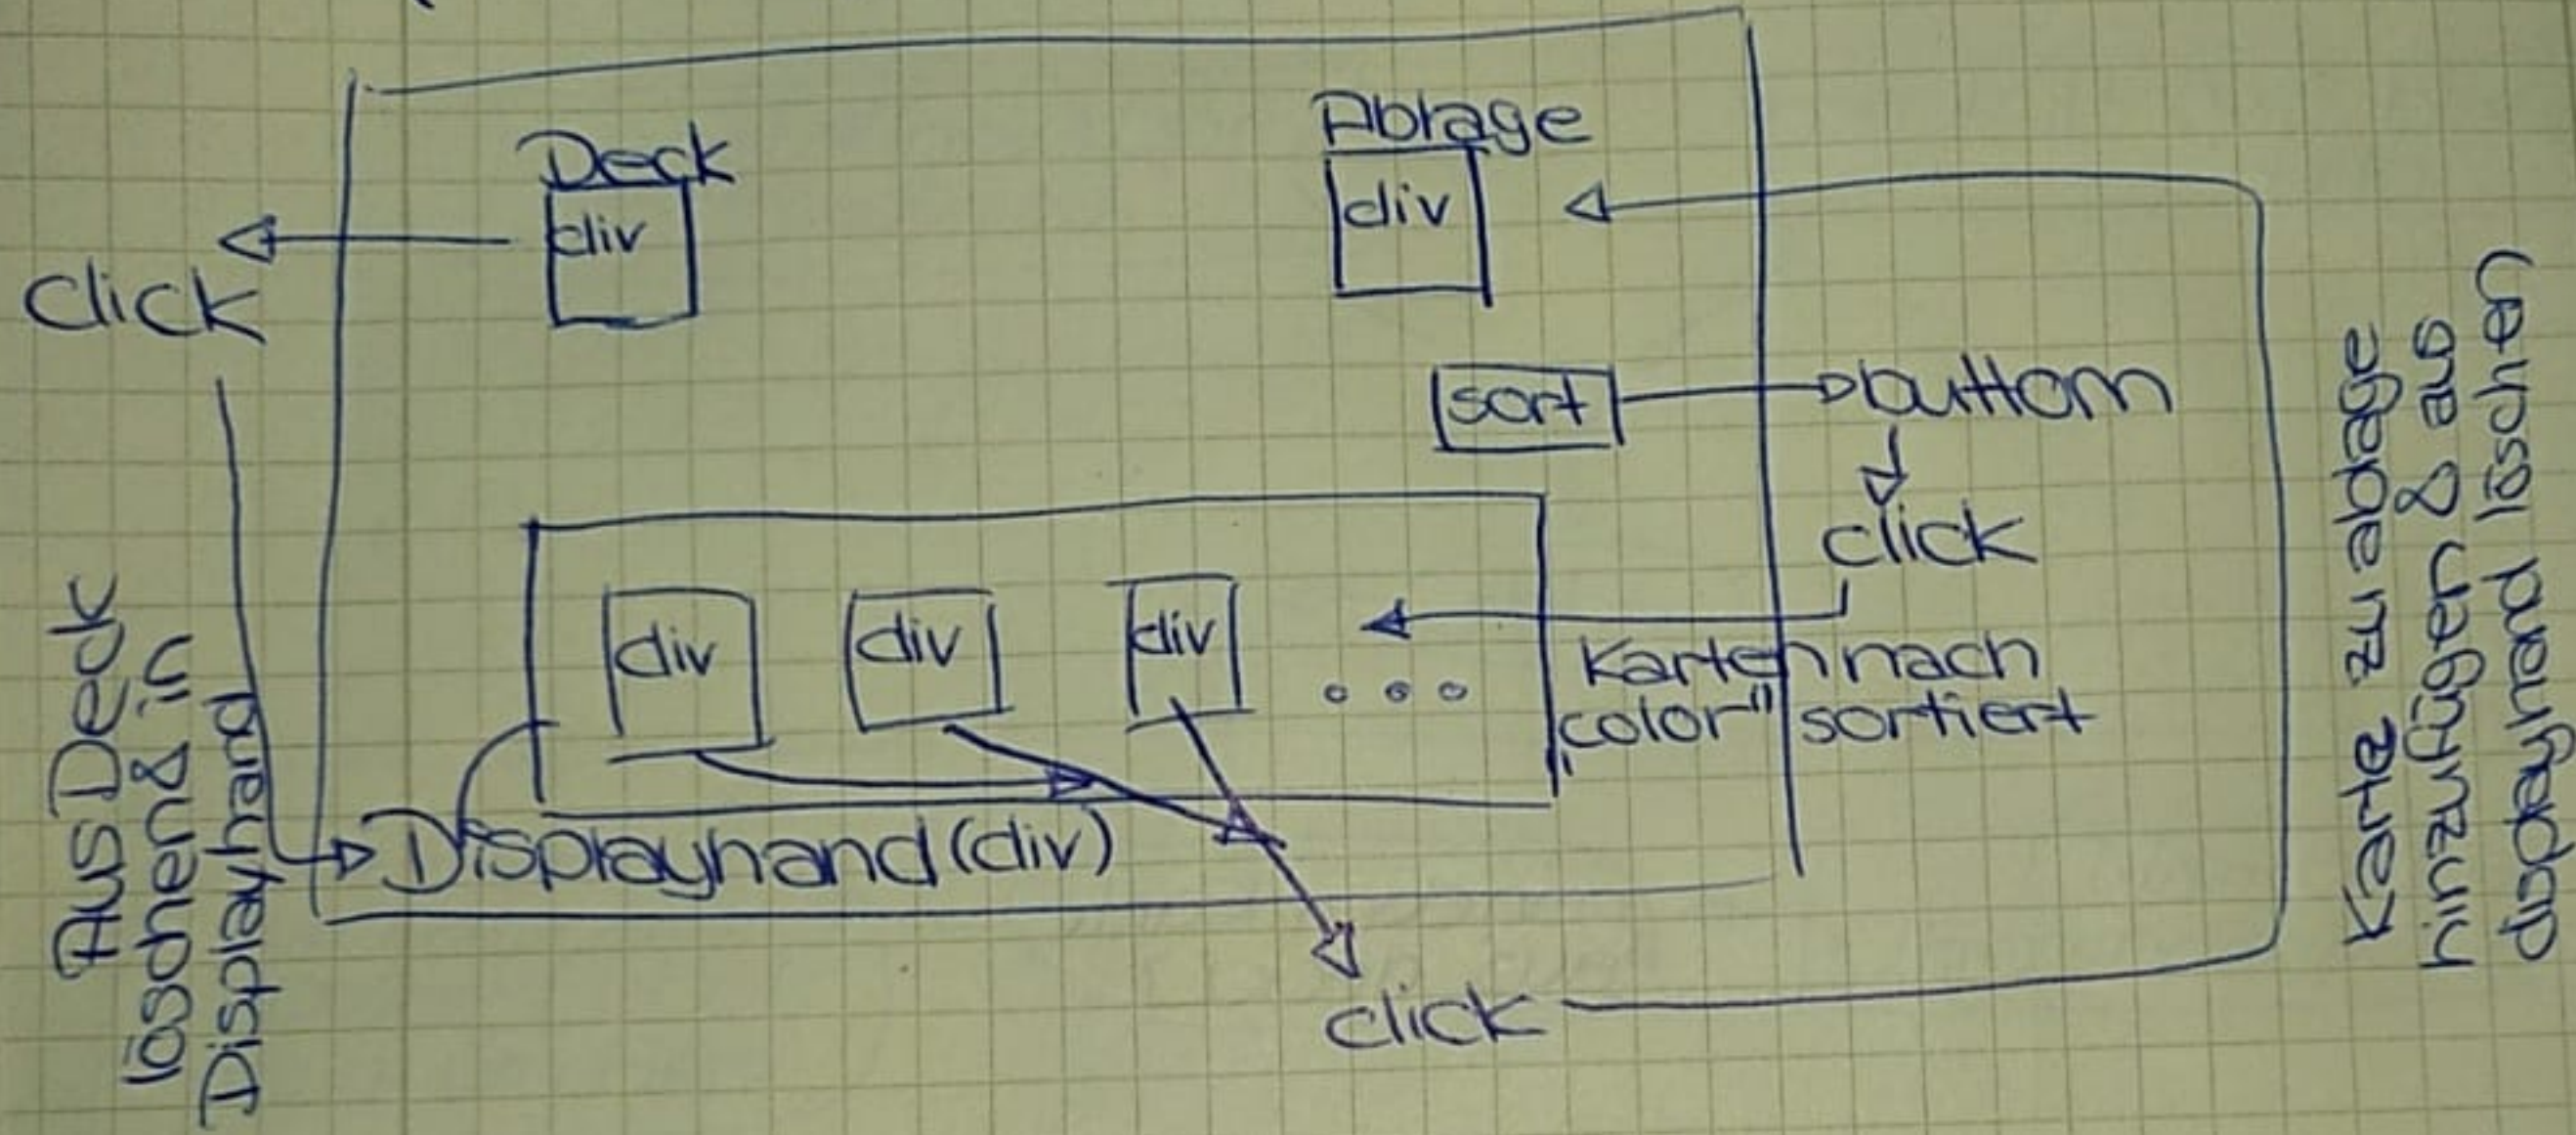 Deck
div
Ablage
div
click
sort
buttom
click
div
div
div
Karten nach
"color" sortiert
Displayhand (div)
click
Aus Deck
löschen & in
Displayhand
Karte zu ablage
hinzufügen & aus
displayhand löschen